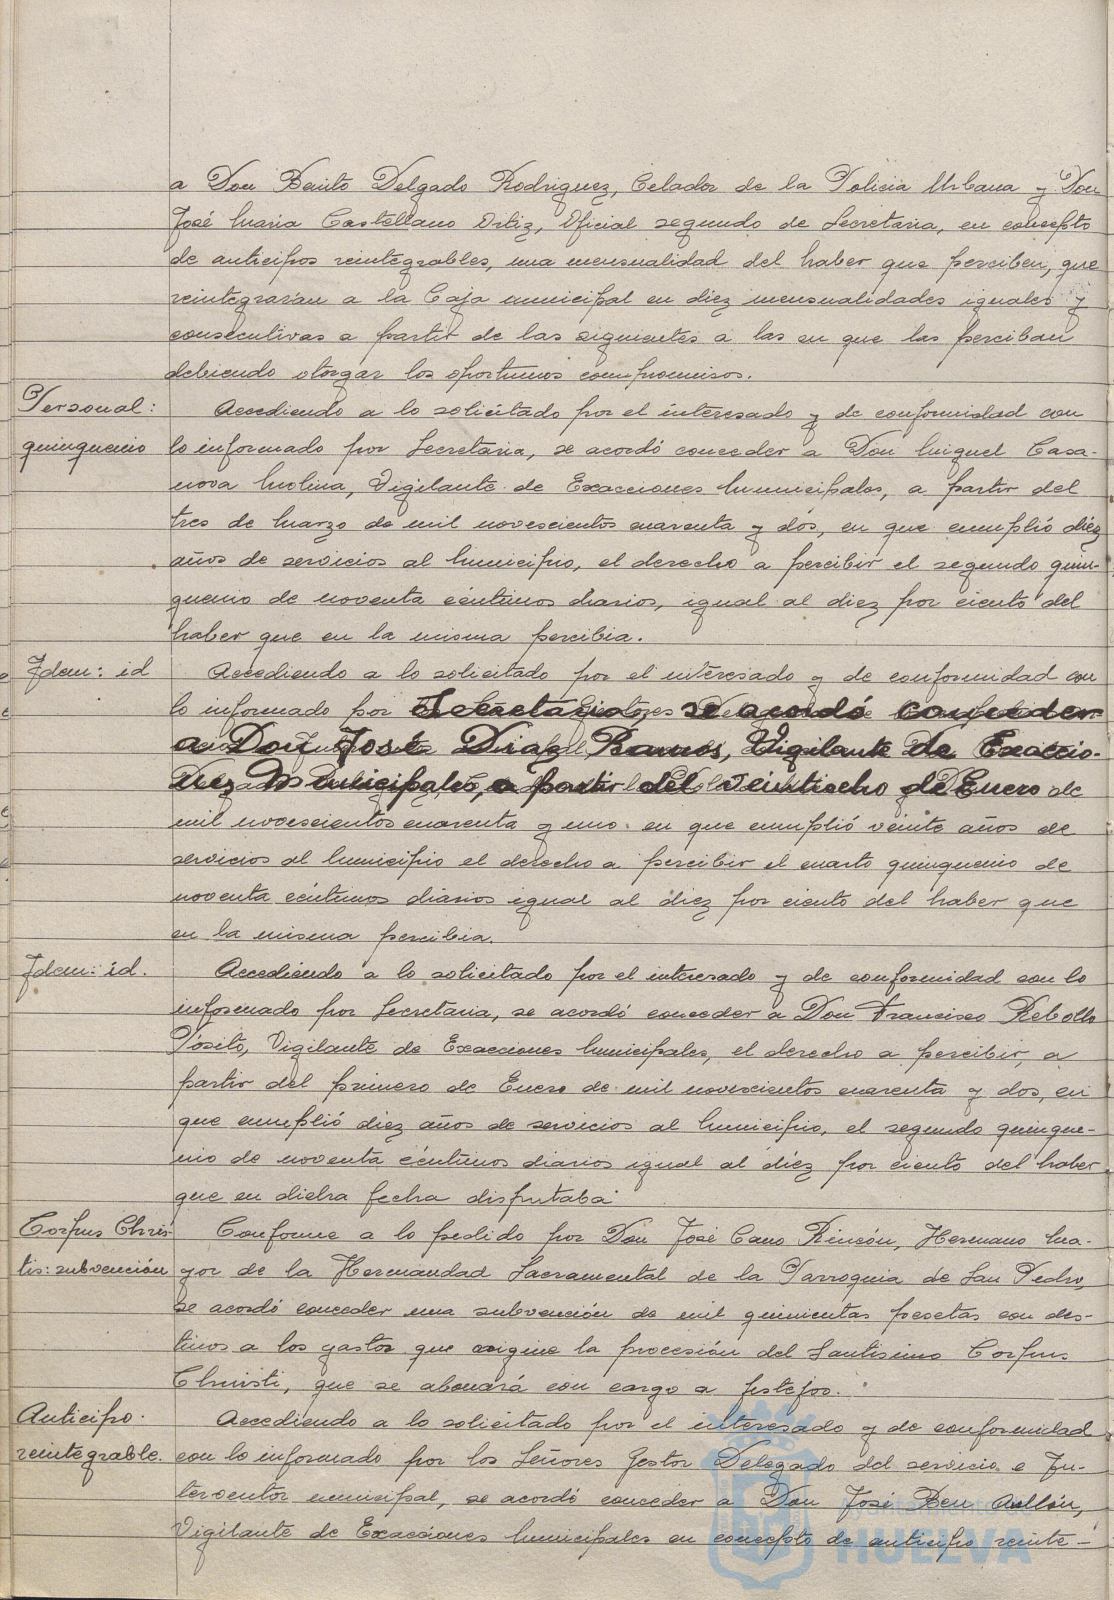 a Don Benito Delgado Rodriguez, Celador de la Policia Urbana y Don
José Maria Castellano Ortiz, Oficial segundo de Secretaria, en concepto
de anticipos reintegrables, una mensualidad del haber que perciben, que
reintegrarán a la Caja municipal en diez mensualidades iguales y
consecutivas a partir de las siguientes a las en que las perciban
debiendo otorgar los oportunos compromisos.
Personal: Accediendo a lo solicitado por el interesado y de conformidad con
quinquenio lo informado por Secretaria, se acordó conceder a Don Miguel Casa-
nova Molina, Vigilante de Exacciones Municipales, a partir del
tres de Marzo de mil novescientos cuarenta y dós, en que cumplió diéz
años de servicios al Municipio, el derecho a percibir el segundo quin-
quenio de noventa céntimos diarios, igual al diez por ciento del
haber que en la misma percibia.
Idem: id Accediendo a lo solicitado por el interesado y de conformidad con
lo informado por Secretaria se acordó conceder
a Don José Diaz Ramos, Vigilante de Exaccio-
nes Municipales, a partir del veintiocho de Enero de
mil novescientos cuarenta y uno en que cumplió veinte años de
servicios al Municipio el derecho a percibir el cuarto quinquenio de
noventa céntimos diarios igual al diez por ciento del haber que
en la misma percibia.
Idem: id. Accediendo a lo solicitado por el interesado y de conformidad con lo
informado por Secretaria, se acordó conceder a Don Francisco Rebollo
Pósito, Vigilante de Exacciones Municipales, el derecho a percibir, a
partir del primero de Enero de mil novescientos cuarenta y dos, en
que cumplió diez años de servicios al Municipio, el segundo quinque-
nio de noventa céntimos diarios igual al diéz por ciento del haber
que en dicha fecha disfrutaba
Corpus Chris- Conforme a lo pedido por Don José Cano Rincón, Hermano Ma-
tis: subvención yor de la Hermandad Sacramental de la Parroquia de San Pedro,
se acordó conceder una subvención de mil quinientas pesetas con des-
tinos a los gastos que origine la procesión del Santisimo Corpus
Christi, que se abonará con cargo a festejos.
Anticipo Accediendo a lo solicitado por el interesado y de conformidad
reintegrable. con lo informado por los Señores Gestor Delegado del servicio e In-
terventor municipal, se acordó conceder a Don José Ben Aullón,
Vigilante de Exacciones Municipales en concepto de anticipo reinte-
Ayuntamiento de
HUELVA